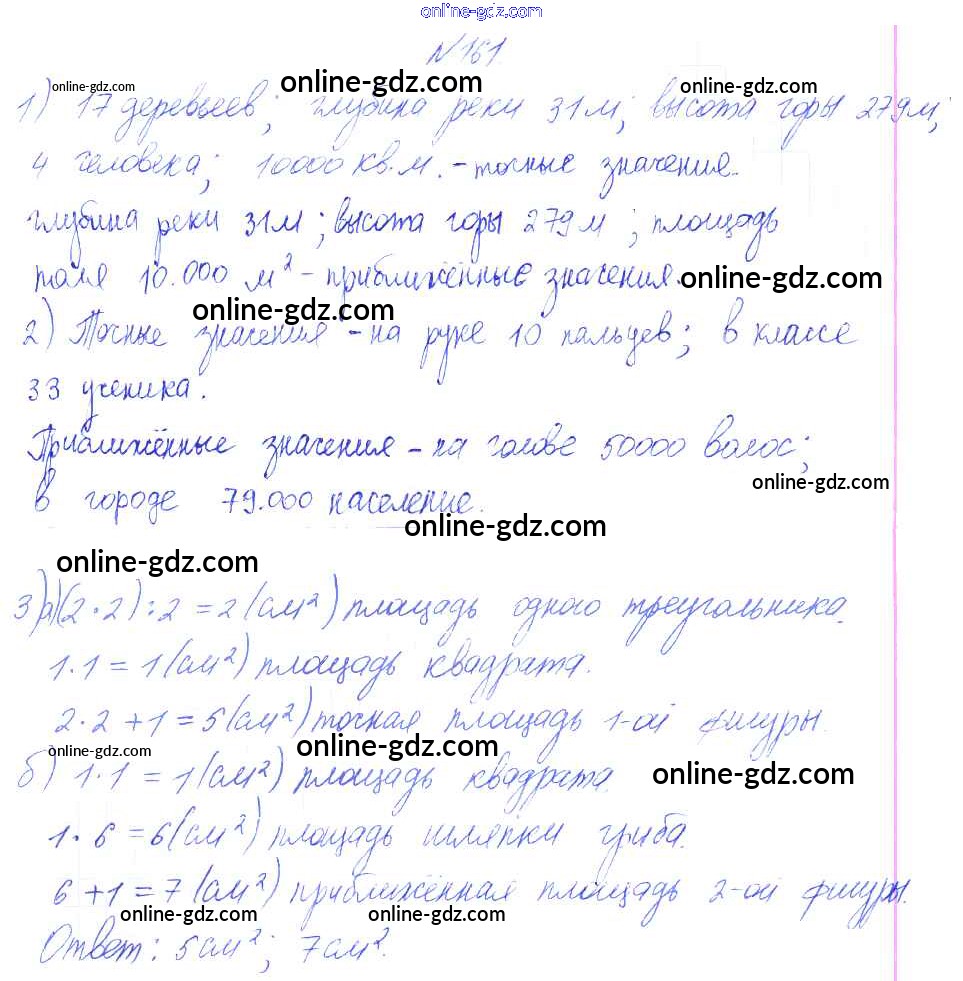 online-gdz.com
№161.
online-gdz.com online-gdz.com online-gdz.com
1) 17 деревьев; глубина реки 31 м; высота горы 279 м;
4 человека; 10000 кв.м. - точные значения.
глубина реки 31 м; высота горы 279 м; площадь
поля 10.000 м² - приближённые значения.
online-gdz.com
online-gdz.com
2) Точные значения - на руке 10 пальцев; в классе
33 ученика.
Приближённые значения - на голове 50000 волос;
online-gdz.com
в городе 79.000 население.
online-gdz.com
online-gdz.com
3) а) (2·2):2=2 (см²) площадь одного треугольника.
1·1=1 (см²) площадь квадрата.
2·2+1=5 (см²) точная площадь 1-ой фигуры.
online-gdz.com online-gdz.com
б) 1·1=1 (см²) площадь квадрата.
online-gdz.com
1·6=6 (см²) площадь шляпки гриба.
6+1=7 (см²) приближённая площадь 2-ой фигуры.
online-gdz.com online-gdz.com
Ответ: 5 см²; 7 см².